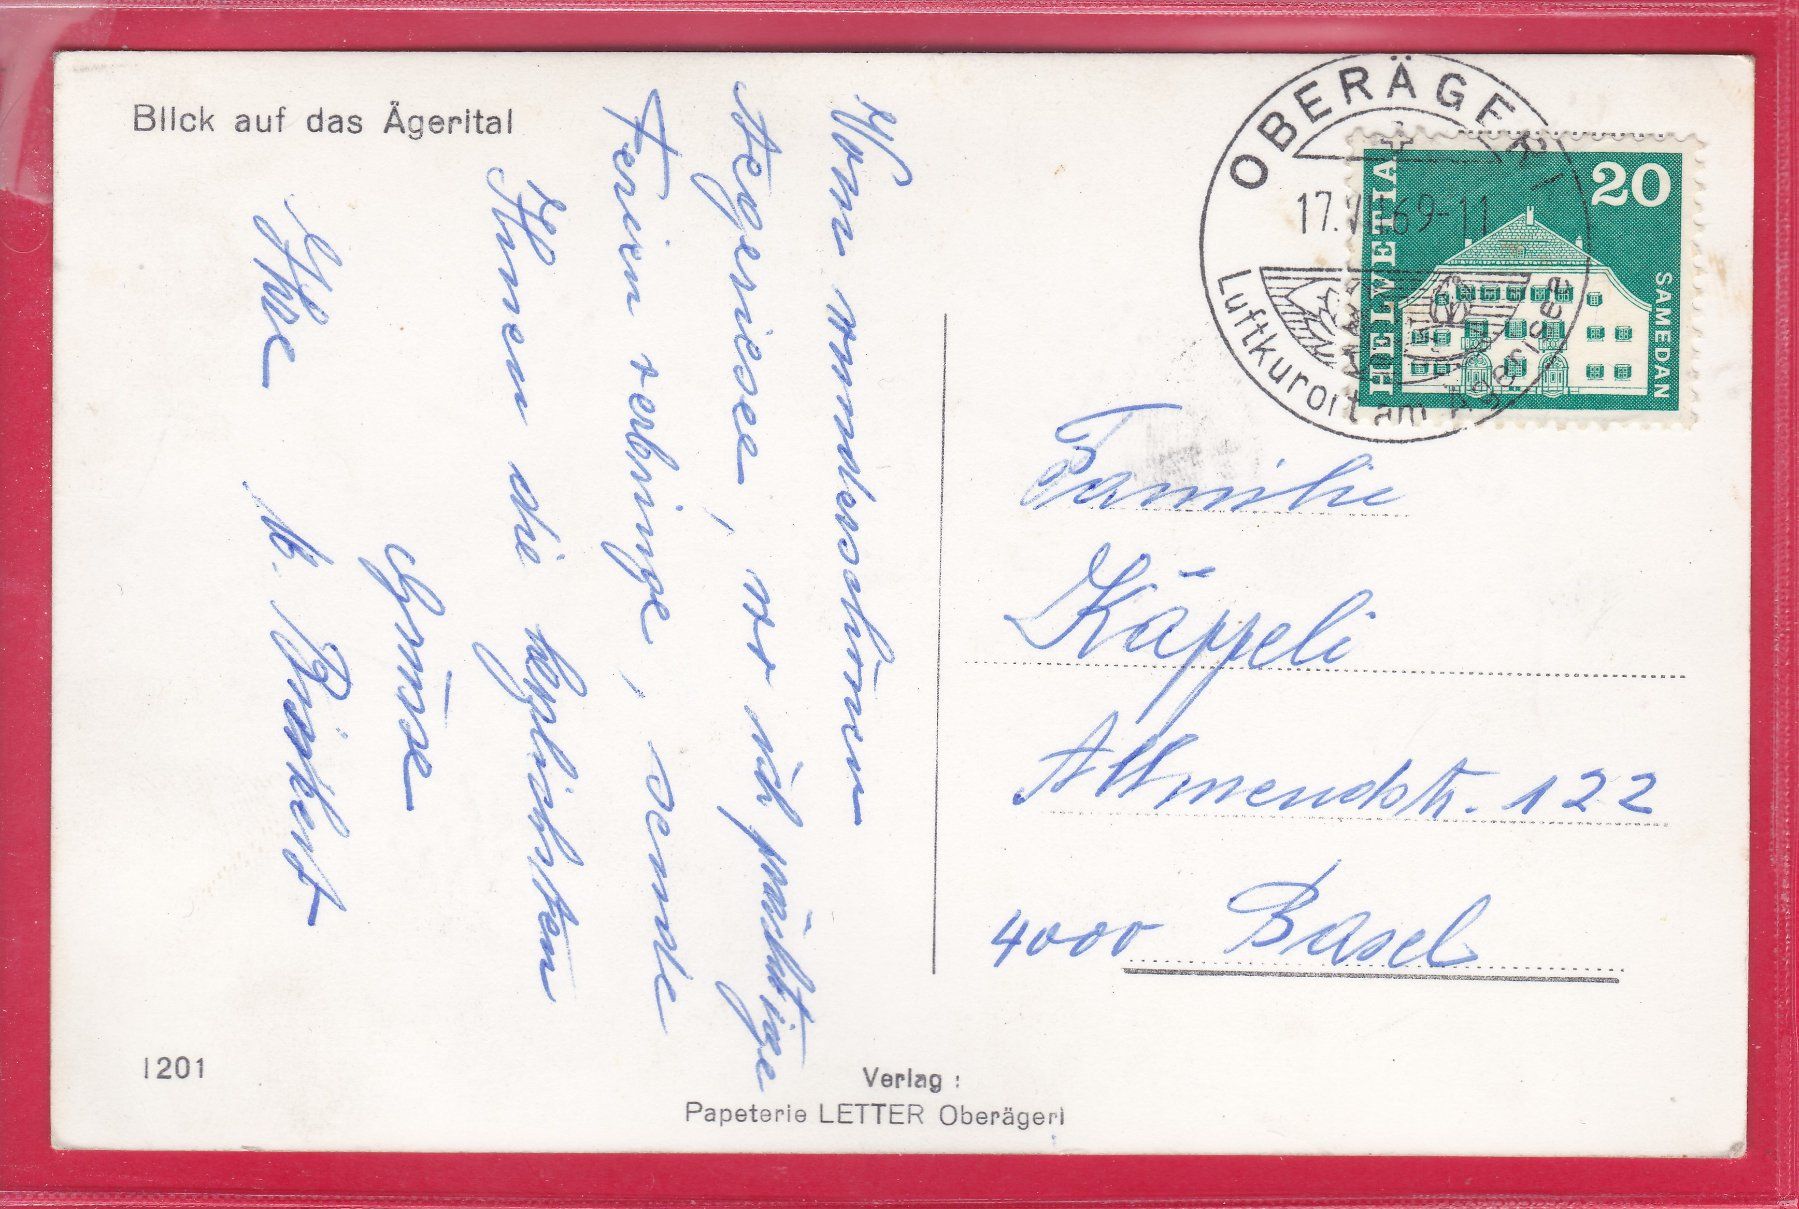 Blick auf das Ägerital
Vom wunderschönen
Aegerisee, wo ich prächtige
Ferien verbringe, sende
Ihnen die herzlichsten
Grüsse
Ihre
OBERÄGERI
17.VII.69-11
Luftkurort am Ägerisee
HELVETIA
20
SAMEDAN
Familie
Käppeli
Allmendstr. 122
4000 Basel
1201
Verlag :
Papeterie LETTER Oberägeri